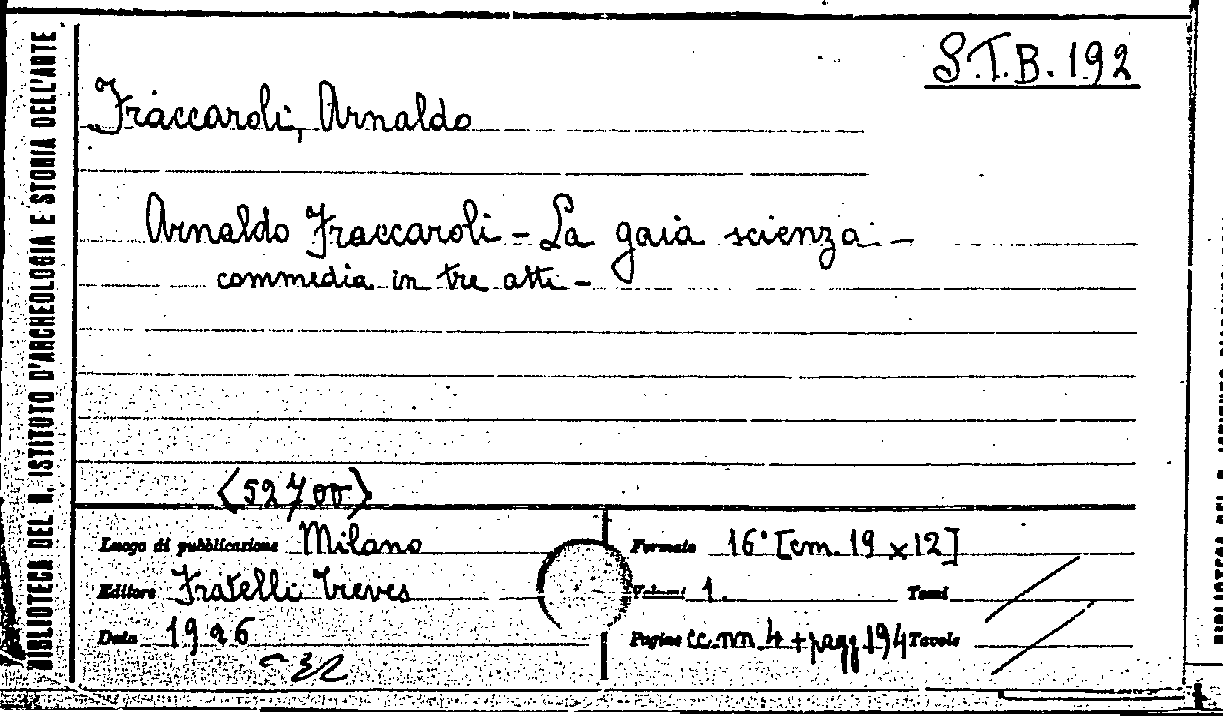 S.T.B. 192
Fraccaroli, Arnaldo
Arnaldo Fraccaroli - La gaia scienza -
commedia in tre atti -
(52700)
Luogo di pubblicazione Milano
Editore Fratelli Treves
Data 1926
Formato 16° [cm. 19 x 12]
Volumi 1. Tomi
Pagine cc. nn. 4 + pagg. 194 Tavole
BIBLIOTECA DEL R. ISTITUTO D'ARCHEOLOGIA E STORIA DELL'ARTE